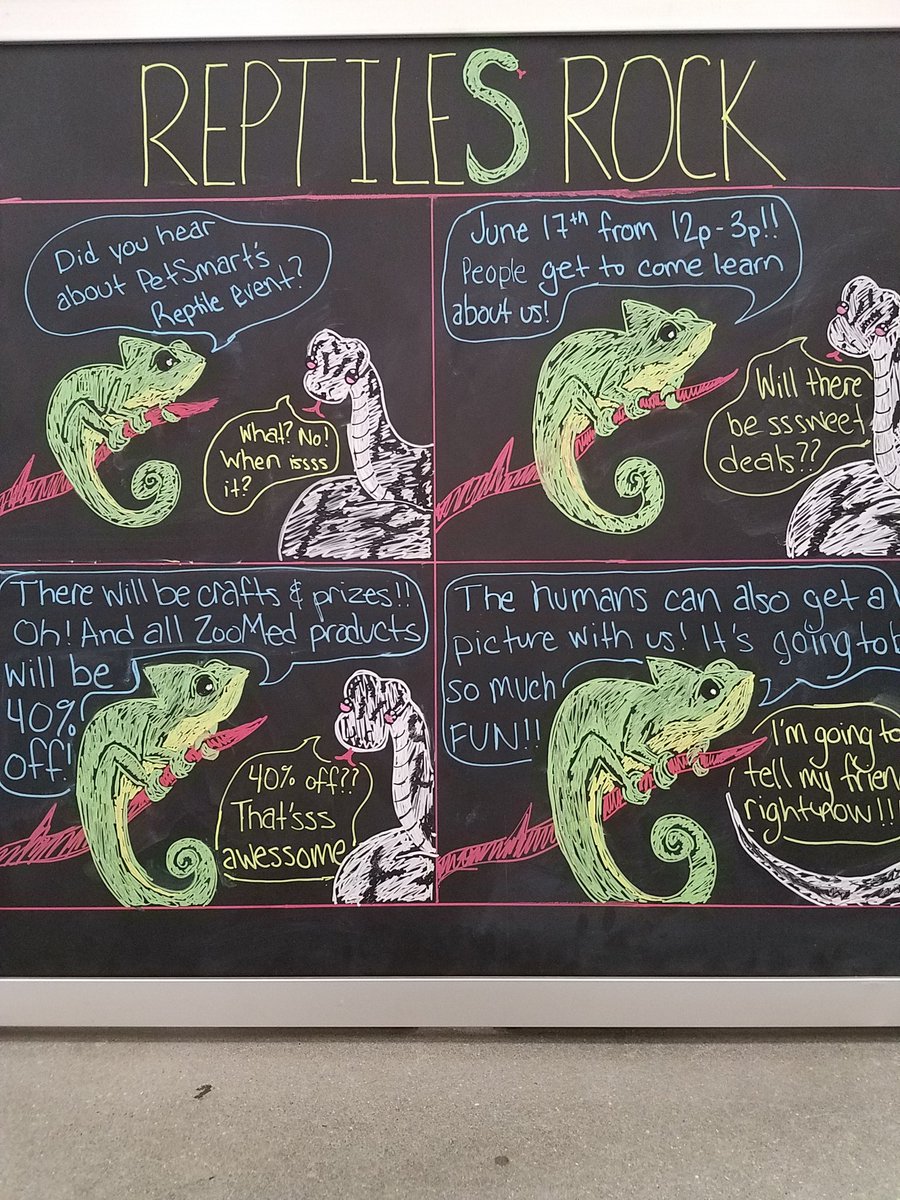 REPTILES ROCK
Did you hear
about PetSmart's
Reptile Event?
What? No!
When issss
it?
June 17th from 12p-3p!!
People get to come learn
about us!
Will there
be sssweet
deals??
There will be crafts & prizes!!
Oh! And all ZooMed products
will be
40%
off!
40% off??
That'sss
awessome
The humans can also get a
picture with us! It's going to b
so much
FUN!!
I'm going to
tell my frien
right now!!!